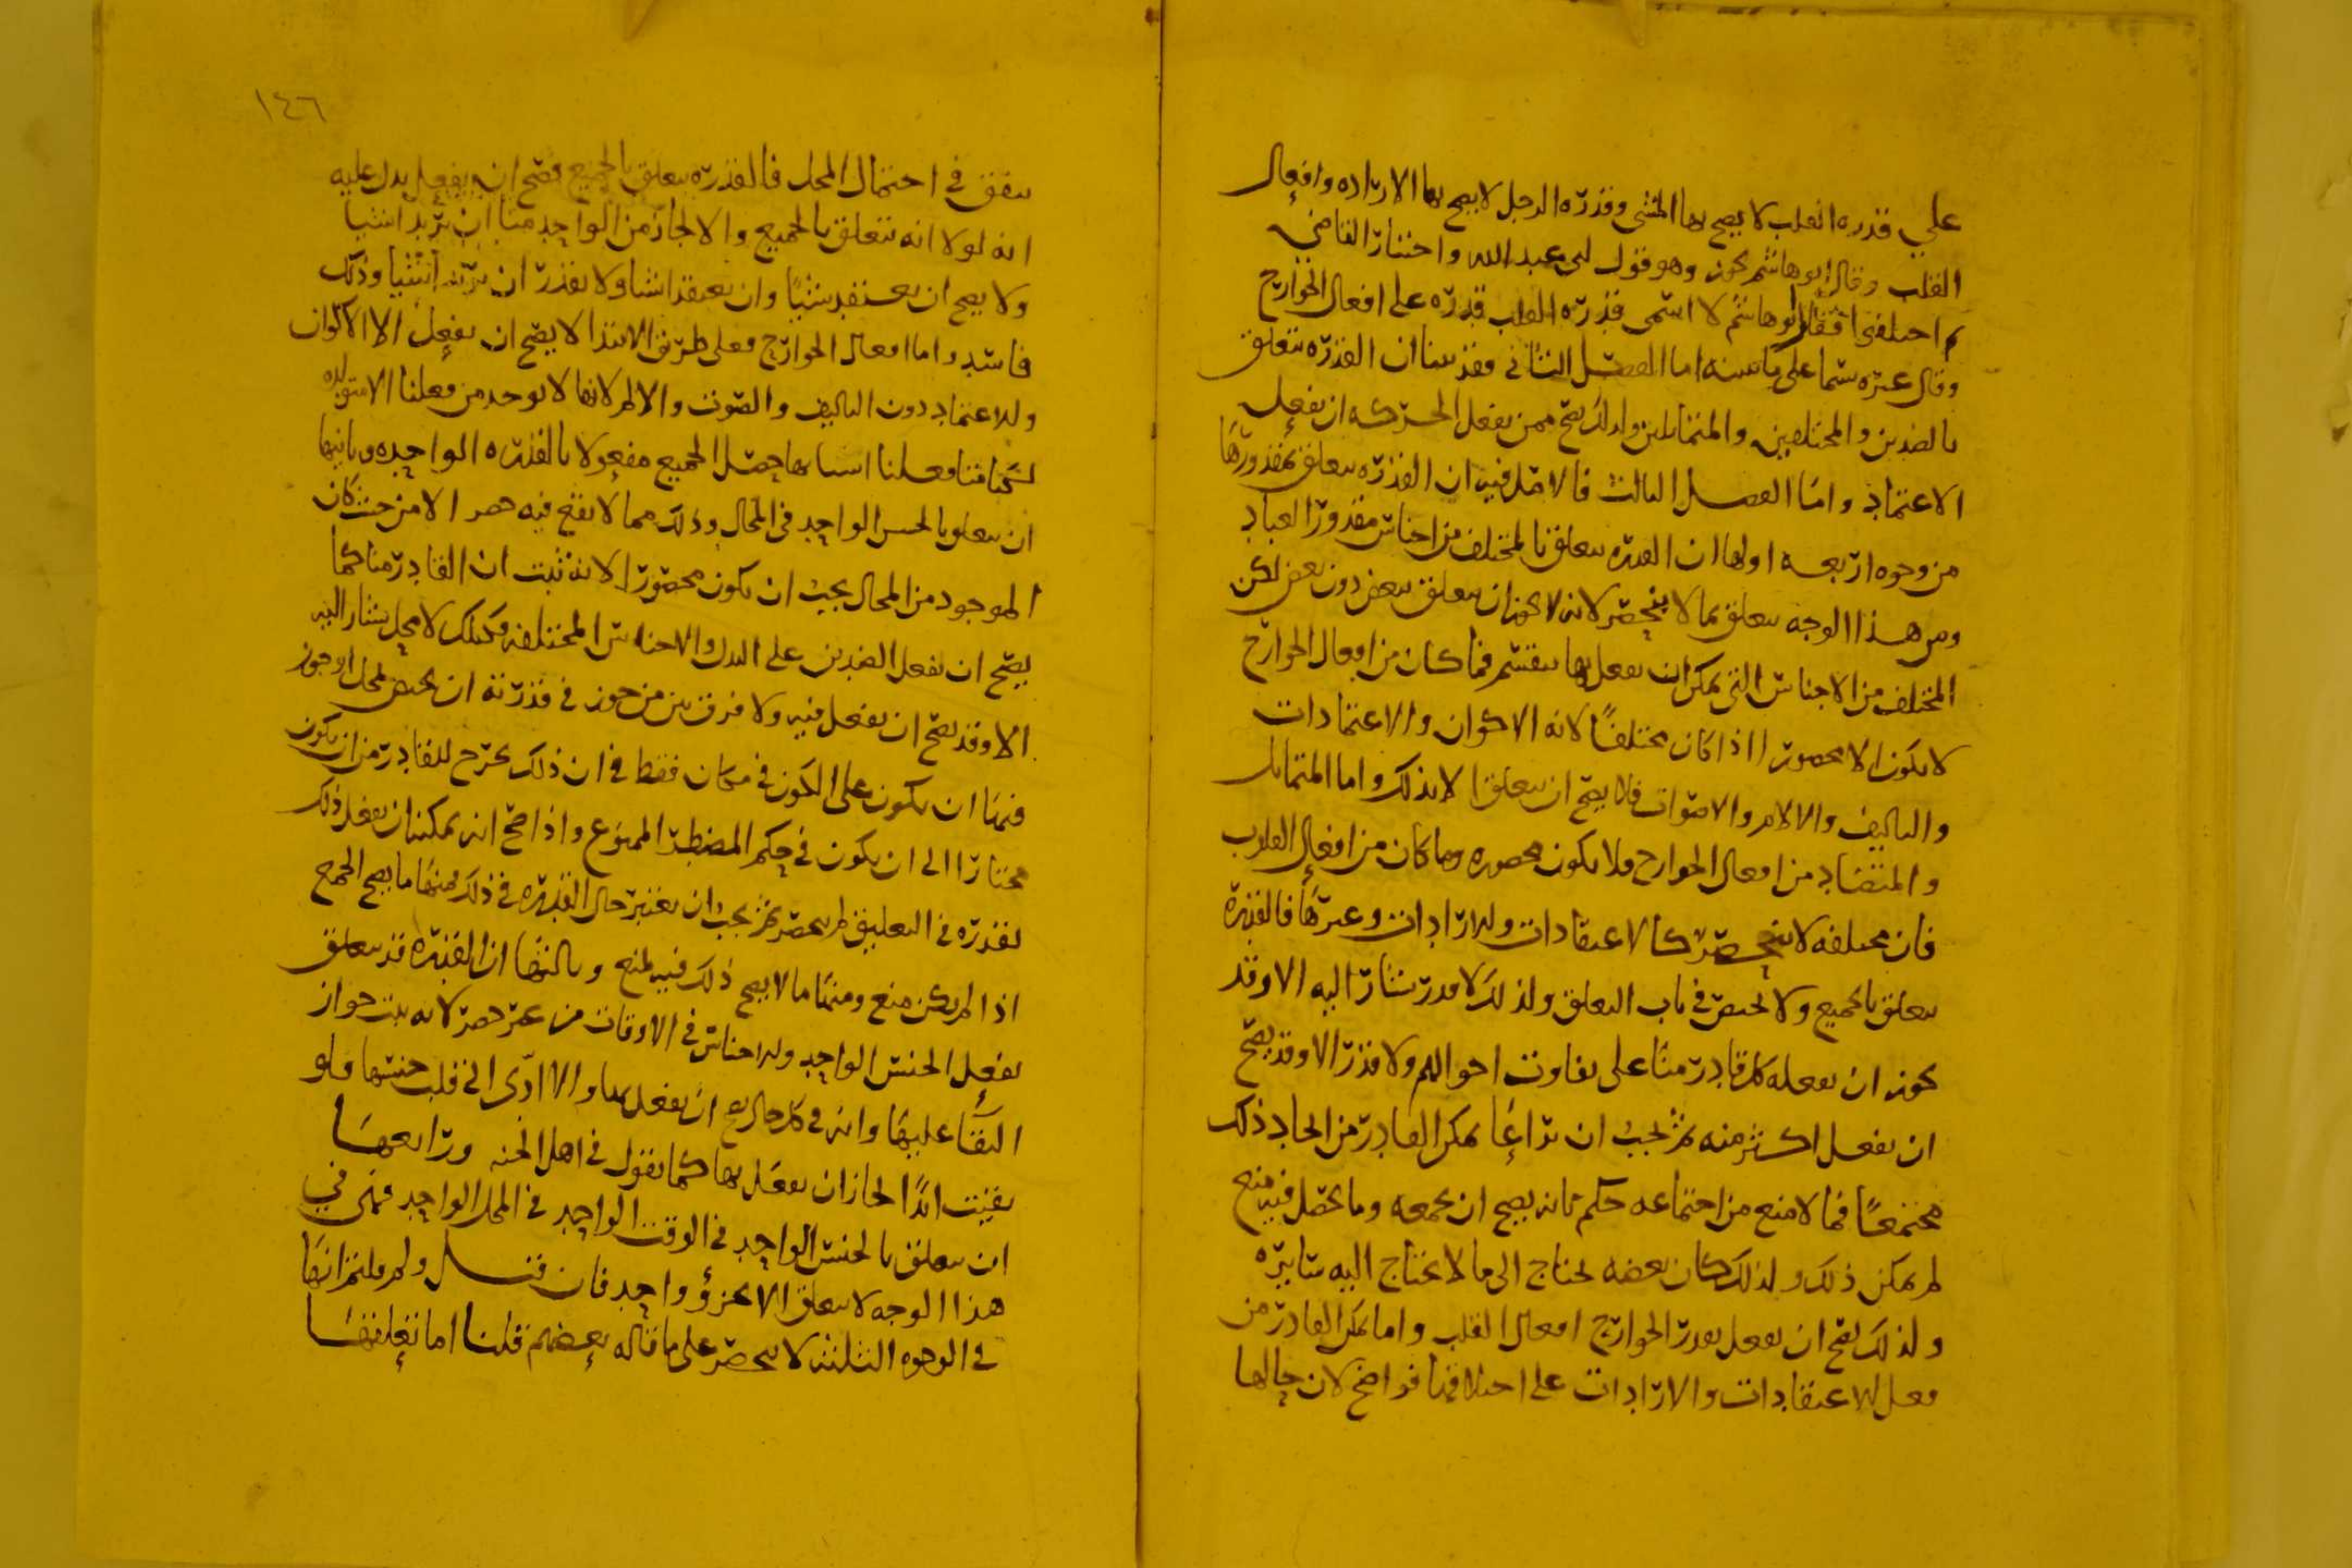 علي قدره القلب لا يصح بها المشي وقدره الرجل لا يصح بها الاراده وافعال
القلب وقال ابو هاشم يجوز وهو قول ابي عبد الله واختار القاضي
ثم اختلفوا فقال ابو هاشم لا اسمي قدره القلب قدره على افعال الجوارح
وقال غيره سما على ما بينه اما الفصل الثاني فقد بينا ان القدره تتعلق
بالضدين والمختلفين والمتماثلين ولذلك يصح ممن يفعل الحركه ان يفعل
الاعتماد واما الفصل الثالث فالاصل فيه ان القدره تتعلق بمقدورها
من وجوه اربعه اولها ان القدره تتعلق بالمختلف من اجناس مقدور العباد
ومن هذا الوجه يتعلق بما لا ينحصر لانه لا يجوز ان يتعلق ببعض دون بعض لكن
المختلف من الاجناس التي يمكن ان يفعل بها ينقسم فما كان من افعال الجوارح
لا يكون الا محصورا اذا كان مختلفا لانه الاكوان والاعتمادات
والتاليف والالام والاصوات فلا يصح ان يتعلق الا بذلك واما المتماثل
والمتضاد من افعال الجوارح فلا يكون محصوره وما كان من افعال القلوب
فان مختلفه لا ينحصر كالاعتقادات والارادات وغيرها فالقدره
يتعلق بالجميع ولا يختص في باب التعلق ولذلك لا قدر يشار اليه الا وقد
يجوز ان يفعله كل قادر منا على تفاوت احوالهم ولا قدر الا وقد يصح
ان يفعل اكثر منه ثم يجب ان يراعا تمكن القادر من ايجاد ذلك
مجتمعا فما لا منع من اجتماعه حكم بانه يصح ان يجمعه وما يحصل فيه منع
لم يمكن ذلك ولذلك كان بعضه يحتاج الى ما لا يحتاج اليه سايره
ولذلك يصح ان يفعل بقدر الجوارح افعال القلب واما تمكن القادر من
فعل الاعتقادات والارادات على اختلافها فواضح لان حالها
١٤٦
يتفق في احتمال المحل فالقدره يتعلق بالجميع فصح ان يفعل يدل عليه
انه لولا انه تتعلق بالجميع والا لجاز من الواحد منا ان يريد اشيا
ولا يصح ان يعتقد شيئا وان يعتقد اشيا ولا يقدر ان يريد اشيا وذلك
فاسد واما افعال الجوارح فعلى طريق الابتدا لا يصح ان يفعل الا الاكوان
والاعتماد دون التاليف والصوت والالم لانها لا توجد من فعلنا الا متولده
لكنا متى فعلنا اسبابها حصل الجميع مفعولا بالقدره الواحده وثانيها
ان يتعلق بالجنس الواحد في المحال وذلك مما لا يقع فيه حصر الا من حيث كان
الموجود من المحال يجب ان يكون محصورا لانه ثبت ان القادر منا كما
يصح ان يفعل الضدين على البدل والاجناس المختلفه فكذلك لا محل يشار اليه
الا وقد يصح ان يفعل فيه ولا فرق بين من جوز في قدرته ان يختص بمحل او جوز
فيما ان يكون على الكون في مكان فقط في ان ذلك يخرج للقادر من ان يكون
مختارا الى ان يكون في حكم المضطر الممنوع واذا صح انه يمكنه ان يفعل ذلك
بقدره في التعليق لم ينحصر ثم يجب ان يعتبر حال القدره في ذلك فمنها ما يصح الجمع
اذا لم يكن منع ومنها ما لا يصح ذلك فيه لمنع وثالثها ان القدره قد يتعلق
بفعل الجنس الواحد والاجناس في الاوقات من غير حصر لانه يثبت جواز
البقا عليها وانه في كل حال يصح ان يفعل بها والا ادى الى قلب جنسها ولو
بقيت ابدا لجاز ان يفعل بها كما نقول في اهل الجنه ورابعها
ان يتعلق بالجنس الواحد في الوقت الواحد في المحل الواحد فمتى في
هذا الوجه لا يتعلق الا بجزؤ واحد فان قيل ولم قلتم انها
في الوجوه الثلثه لا ينحصر على ما قاله بعضهم قلنا اما تعلقها